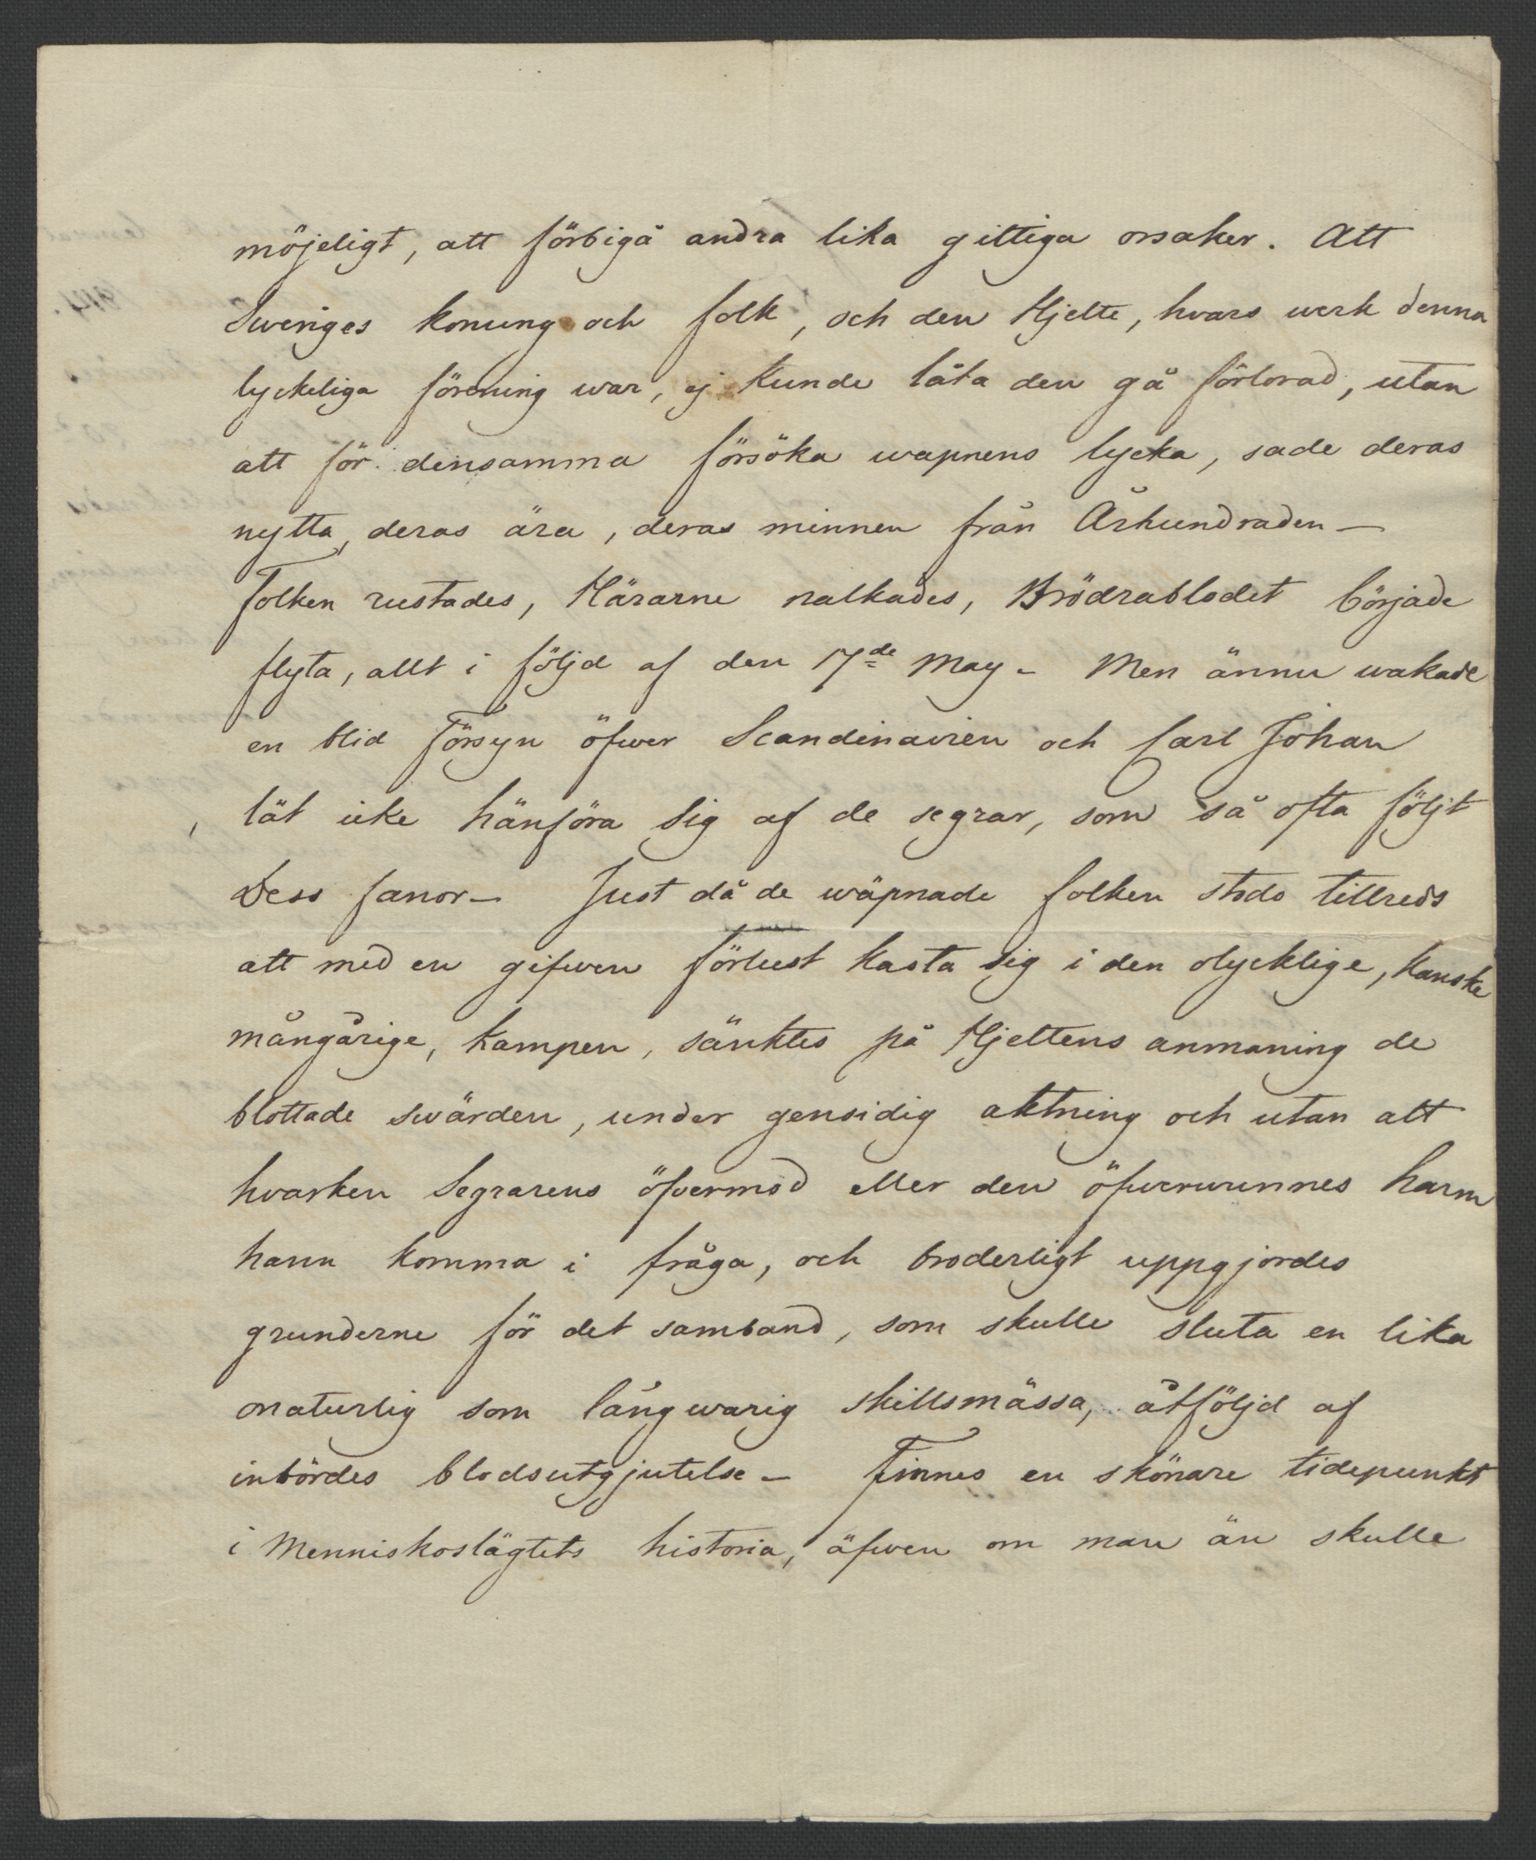 möjeligt, att förbigå andra lika giltiga orsaker. Att
Sweriges konung och folk, och den Hjelte, hvars werk denna
lyckeliga förening war, ej kunde låta den gå förlorad, utan
att för densamma försöka wapnens lycka, sade deras
nytta, deras ära, deras minnen från Århundraden —
Folken rustades, Härarne nalkades, Brödrablodet började
flyta, allt i följd af den 17de May – Men ännu wakade
en blid Försyn öfwer Scandinavien och Carl Johan
lät icke hänföra sig af de segrar, som så ofta följt
Dess fanor – Just då de wäpnade folken stodo tillreds
att med en gifwen förlust kasta sig i den olycklige, kanske
mångårige, kampen, sänktes på Hjeltens anmaning de
blottade swärden, under gensidig aktning och utan att
hvarken Segrarens öfvermod eller den öfwerwunnes harm
hann komma i fråga, och broderligt uppgjordes
grunderne för det samband, som skulle sluta en lika
onaturlig som långwarig skillsmässa, åtföljd af
inbördes blodsutgjutelse – Finnes en skönare tidepunkt
i Menniskoslägtets historia, äfwen om man än skulle